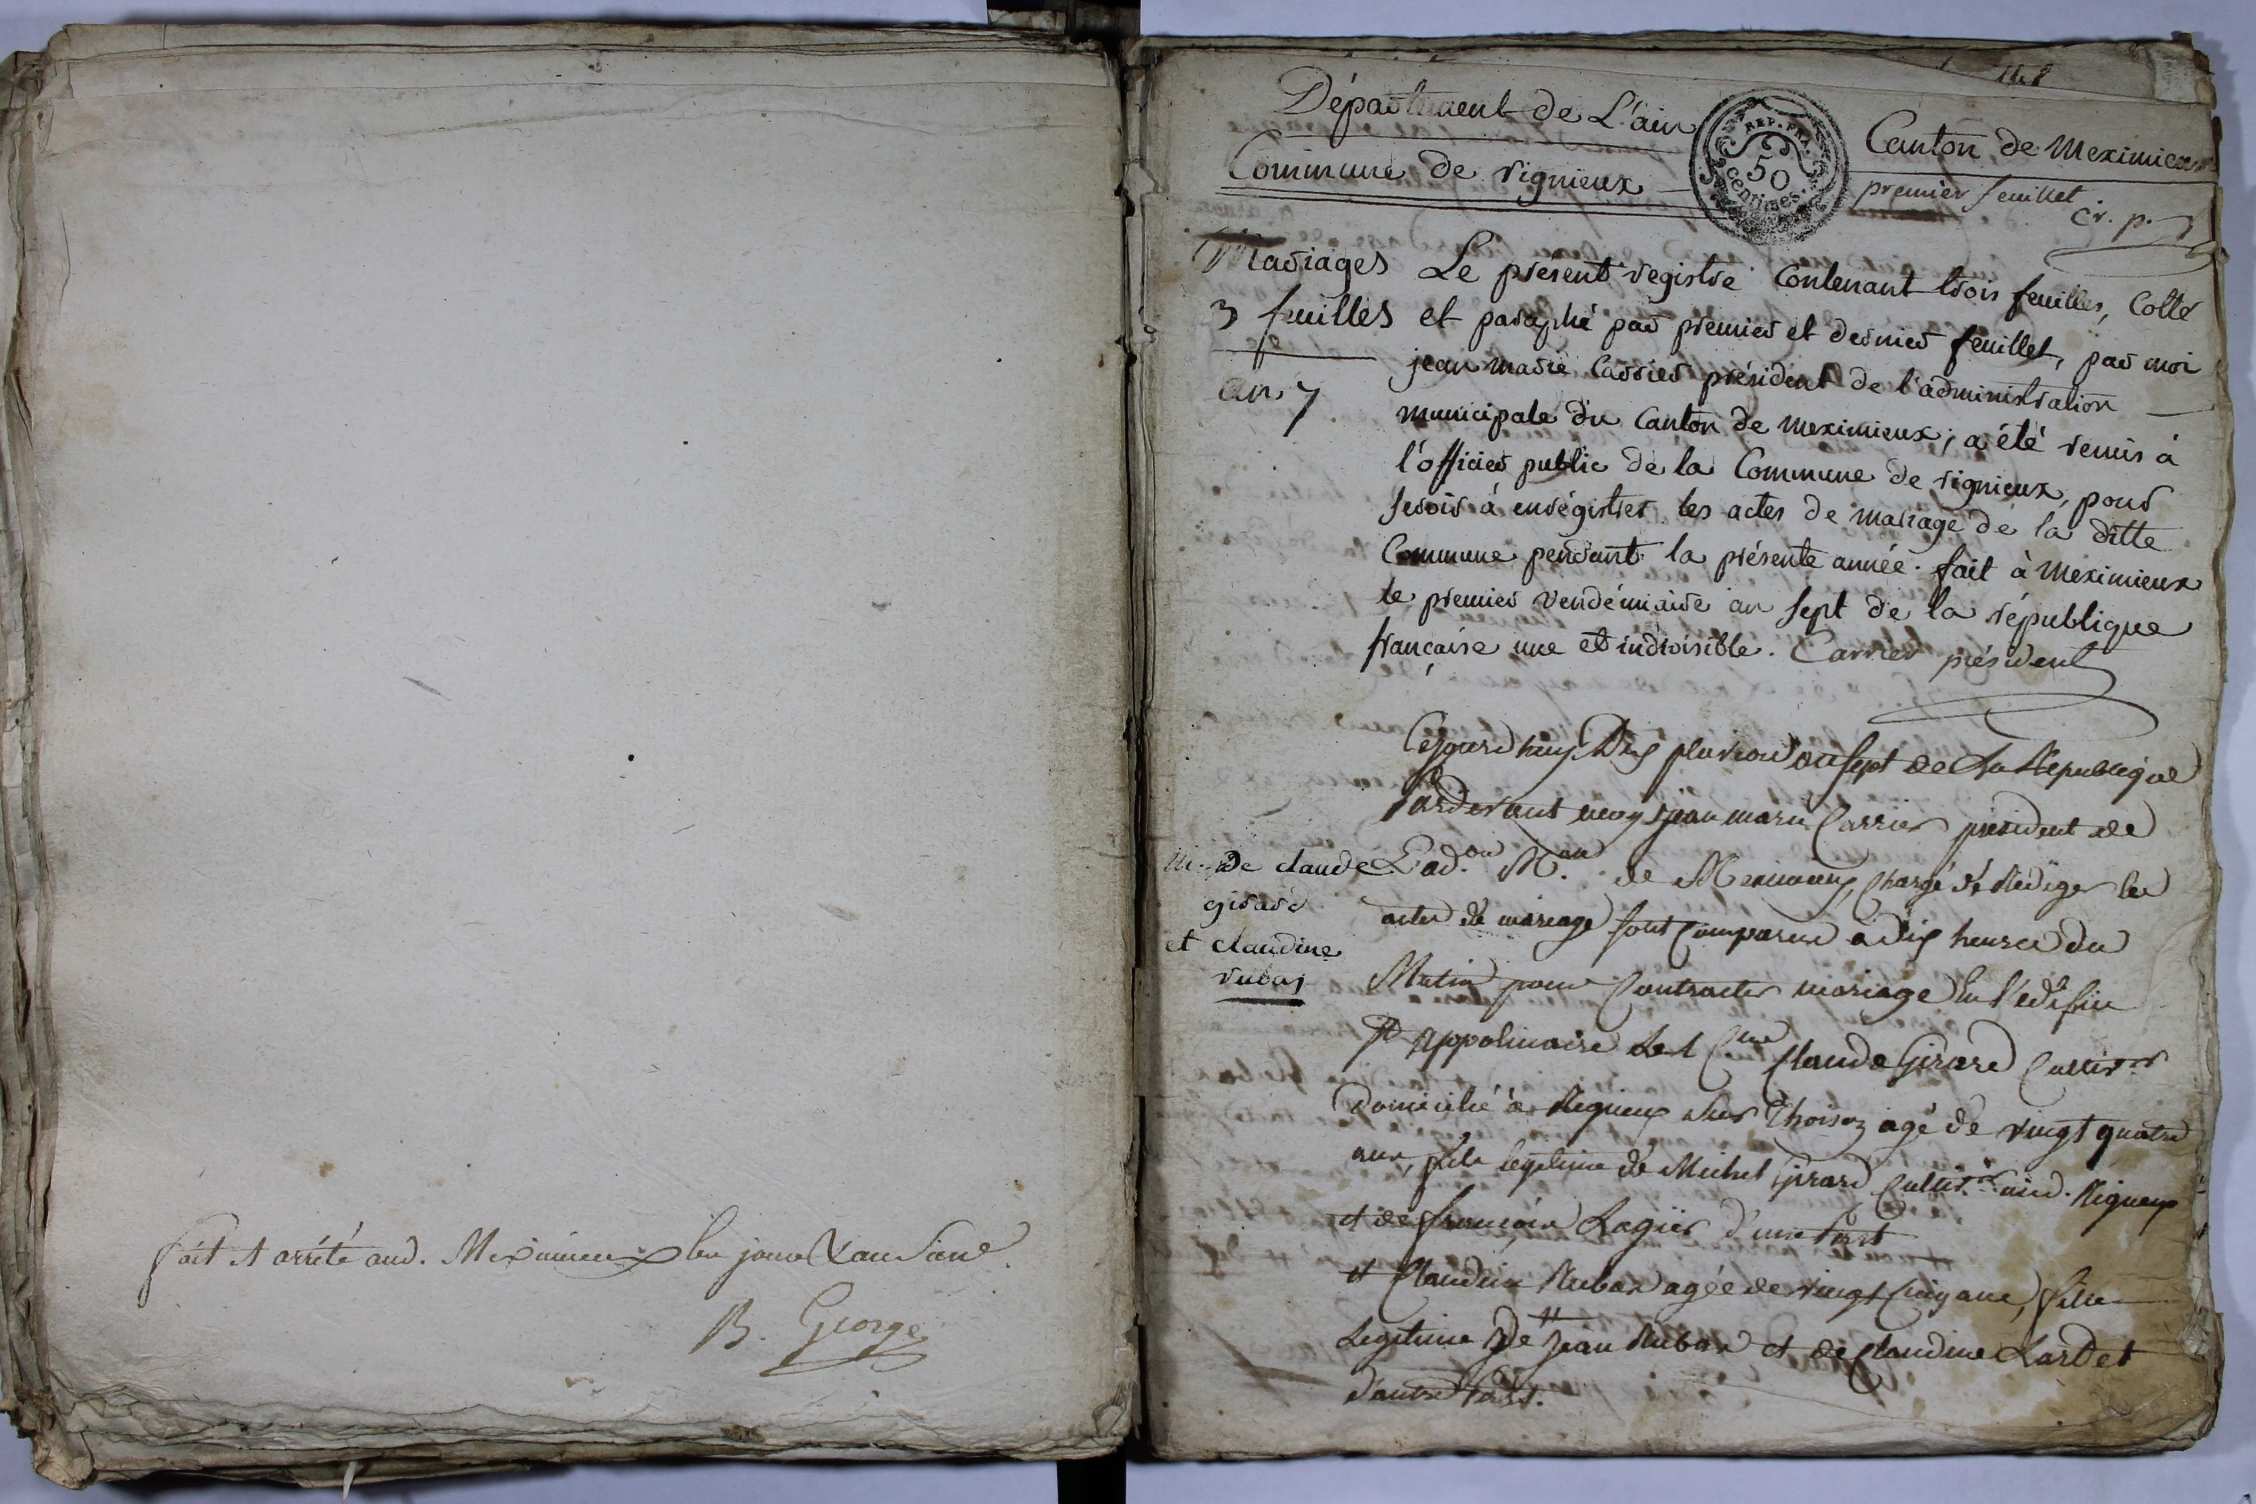 fait et arrêté aud. Meximieux les jour et an Susd.
B. George
Département de L'ain
Canton de Meximieux
Commune de rignieux
REP. FRA.
50
centimes
premier feuillet
cr. p.
Mariages
3 feuilles
an 7
Le présent registre contenant trois feuilles, Cotté
et paraphé par premier et dernier feuillet, par moi
jean marie Carrier président de l'administration
municipale du Canton de meximieux, a été remis à
l'officier public de la Commune de rignieux, pour
servir à enrégistrer les actes de mariage de la ditte
Commune pendant la présente année. fait à Meximieux
le premier vendémiaire an sept de la république
française une et indivisible. Carrier président
Cejourdhuy Dix pluviose an sept de La République
Pardevant moy jean marie Carrier président de
L'ad.on M.au de Meximieux Chargé de Rédiger les
actes de mariage sont Comparus à dix heures du
Matin pour Contracter mariage En l'édifice
St appolinaire Le Cen Claude Girard Cultivr
Domicilié à Rigneux Sur agé de vingt quatre
ans, fils légitime de Michel Girard Cultivr aud. Rigneux
et de françoise Lagier d'une Part
et Claudine Rubas agée de vingt Cinq ans, fille
Légitime de jean Rubas et de Claudine Lardet
d'autre Part.
m. de claude
girard
et claudine
rubas